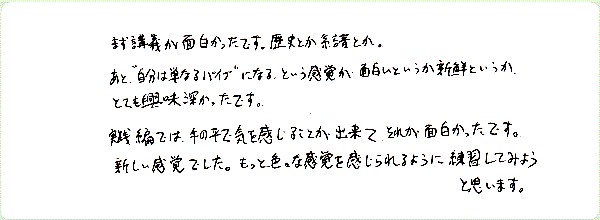 まず講義が面白かったです。歴史とか系譜とか。
あと、"自分は単なるパイプ"になる、という感覚が、面白いというか新鮮というか、
とても興味深かったです。
実践編では、手の平で気を感じることが出来て、それが面白かったです。
新しい感覚でした。もっと色々な感覚を感じられるように練習してみよう
と思います。